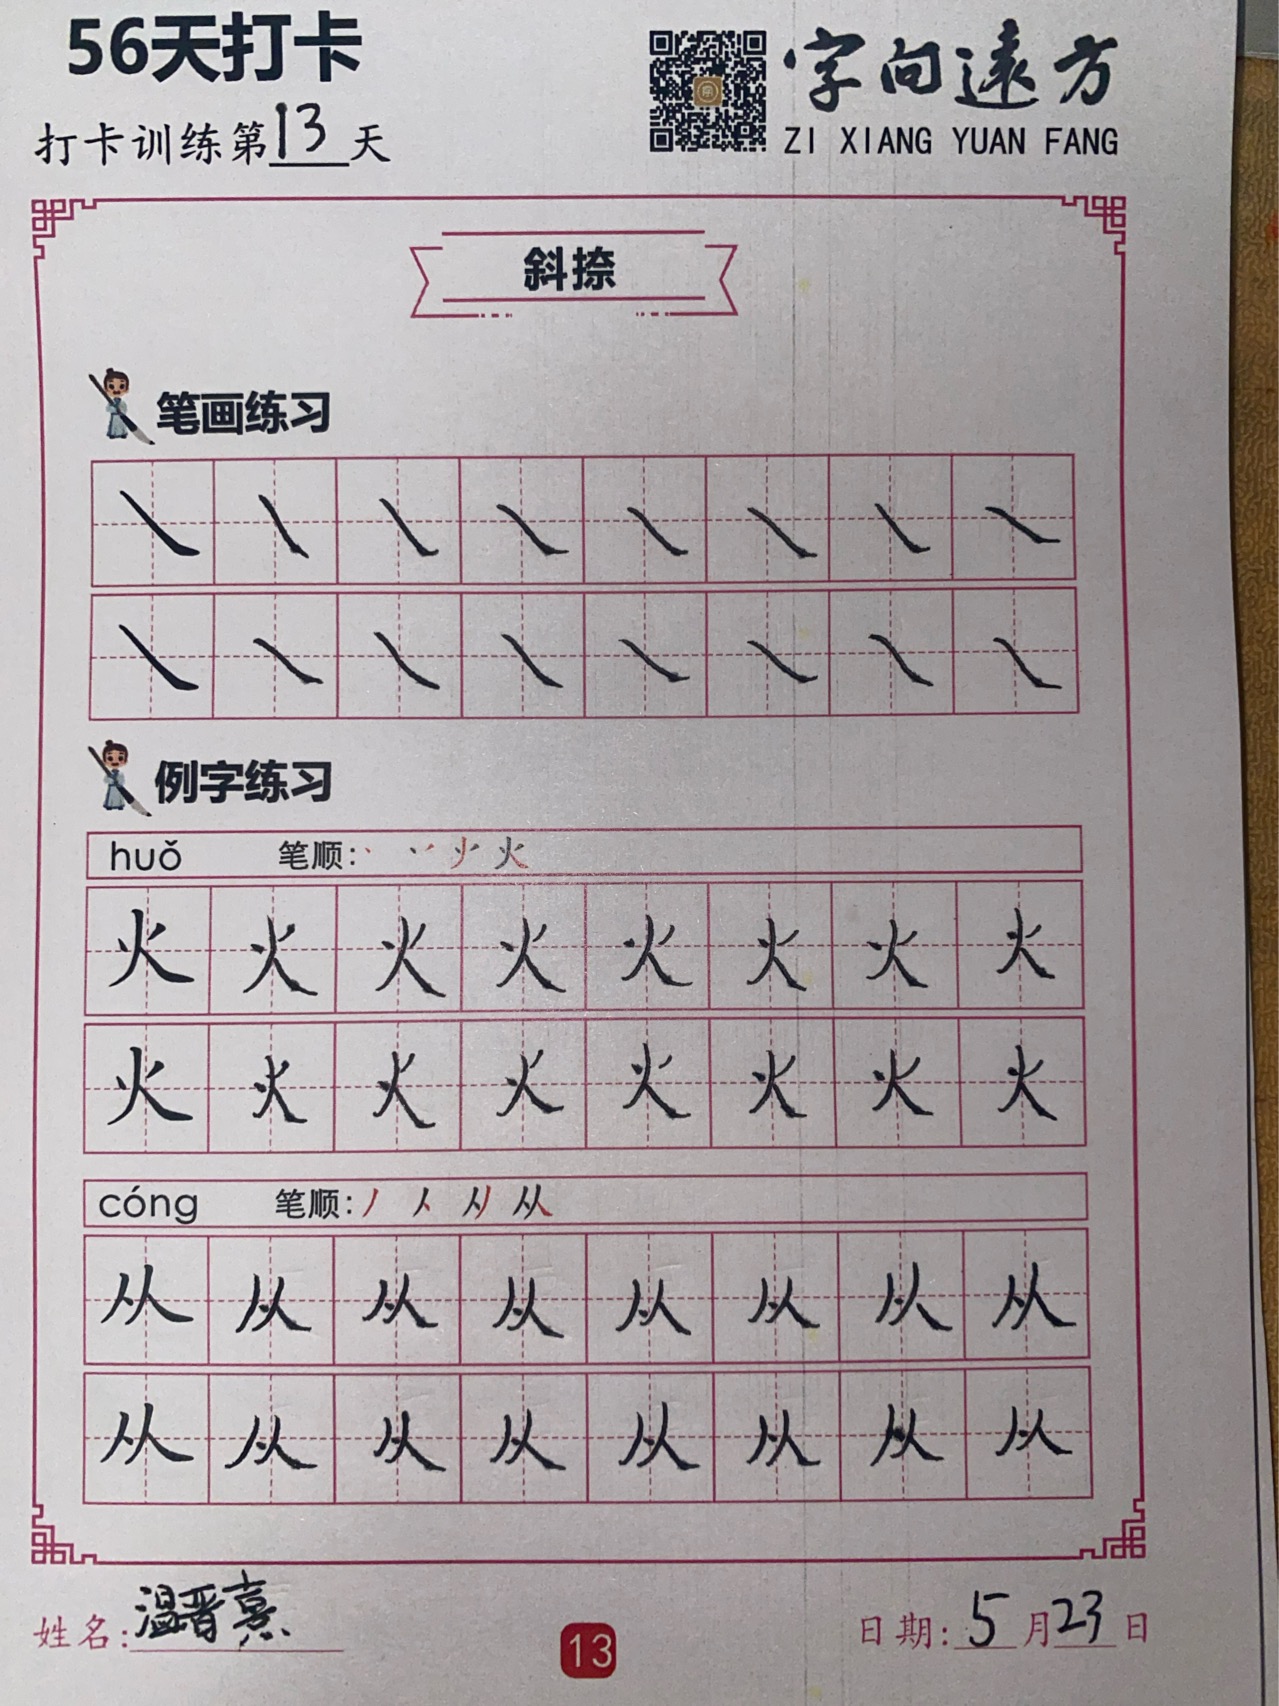 56天打卡
打卡训练第13天
字向远方
ZI XIANG YUAN FANG
斜捺
笔画练习
例字练习
huǒ 笔顺: 火
火 火 火 火 火 火 火 火
火 火 火 火 火 火 火 火
cóng 笔顺: 从
从 从 从 从 从 从 从 从
从 从 从 从 从 从 从 从
姓名: 温晋熹
13
日期: 5月23日